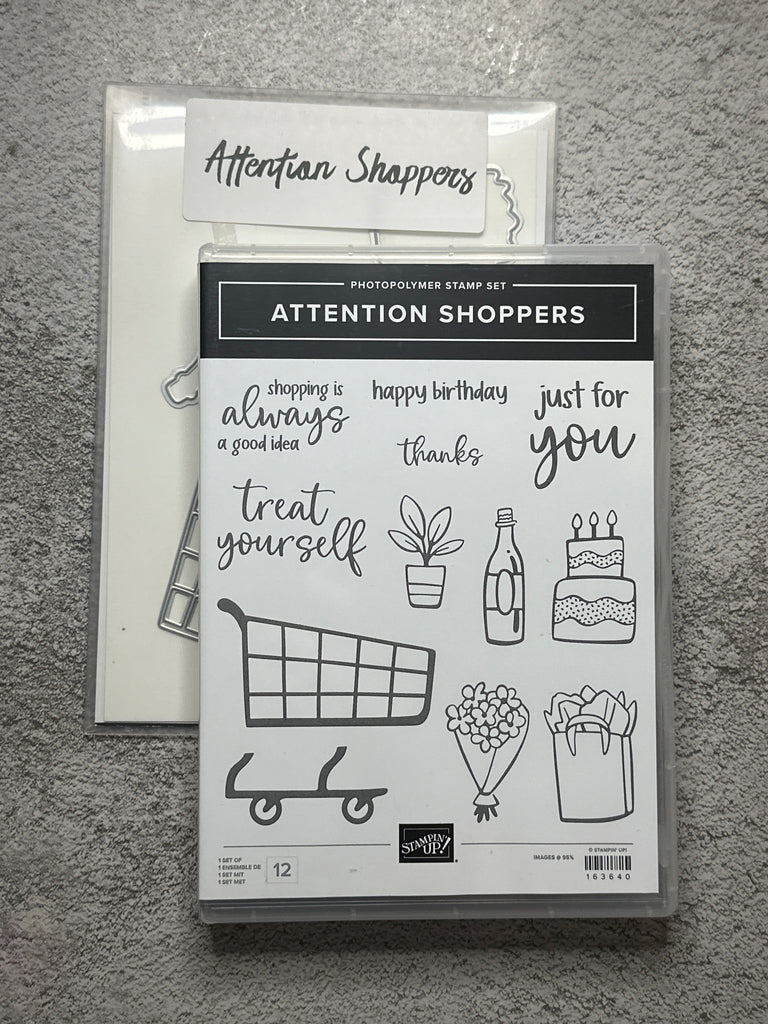 Attention Shoppers
PHOTOPOLYMER STAMP SET
ATTENTION SHOPPERS
shopping is
always
a good idea
happy birthday
thanks
just for
you
treat
yourself
STAMPIN'
UP!
1 SET OF
1 ENSEMBLE DE
1 SET MIT
1 SET MET
12
IMAGES @ 95%
© STAMPIN' UP!
163640